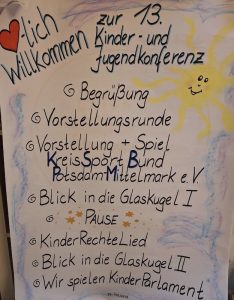 ♥lich
Willkommen
zur 13.
Kinder- und
Jugendkonferenz
Begrüßung
Vorstellungsrunde
Vorstellung + Spiel
KreisSportBund
Potsdam Mittelmark e.V.
Blick in die Glaskugel I
PAUSE
KinderRechteLied
Blick in die Glaskugel II
Wir spielen KinderParlament